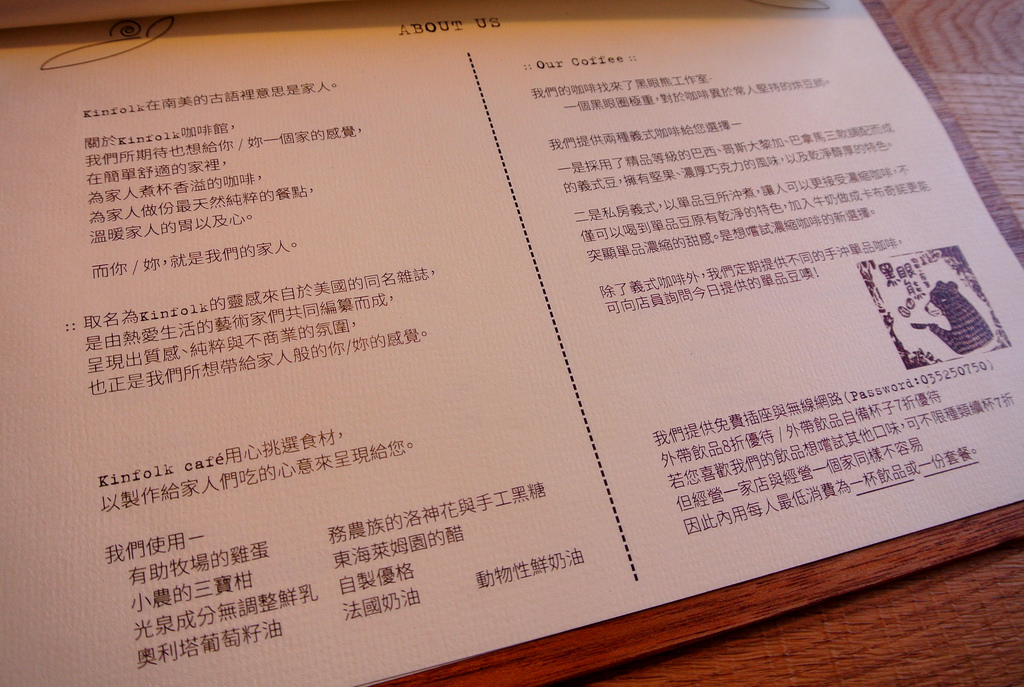 ABOUT US
Kinfolk在南美的古語裡意思是家人。
關於Kinfolk咖啡館，
我們所期待也想給你 / 妳一個家的感覺，
在簡單舒適的家裡，
為家人煮杯香溢的咖啡，
為家人做份最天然純粹的餐點，
溫暖家人的胃以及心。
而你 / 妳，就是我們的家人。
:: 取名為Kinfolk的靈感來自於美國的同名雜誌，
是由熱愛生活的藝術家們共同編纂而成，
呈現出質感、純粹與不商業的氛圍，
也正是我們所想帶給家人般的你/妳的感覺。
Kinfolk café用心挑選食材，
以製作給家人們吃的心意來呈現給您。
我們使用一
有助牧場的雞蛋
小農的三寶柑
光泉成分無調整鮮乳
奧利塔葡萄籽油
務農族的洛神花與手工黑糖
東海萊姆園的醋
自製優格
法國奶油
動物性鮮奶油
:: Our Coffee ::
我們的咖啡找來了黑眼熊工作室-
一個黑眼圈極重，對於咖啡異於常人堅持的烘豆師。
我們提供兩種義式咖啡給您選擇一
一是採用了精品等級的巴西、哥斯大黎加、巴拿馬三款調配而成
的義式豆，擁有堅果、濃厚巧克力的風味，以及乾淨醇厚的特色。
二是私房義式，以單品豆所沖煮，讓人可以更接受濃縮咖啡，不
僅可以喝到單品豆原有乾淨的特色，加入牛奶做成卡布奇諾更能
突顯單品濃縮的甜感。是想嚐試濃縮咖啡的新選擇。
除了義式咖啡外，我們定期提供不同的手沖單品咖啡，
可向店員詢問今日提供的單品豆噢!
黑眼熊
我們提供免費插座與無線網路(Password:035250750)
外帶飲品8折優待 / 外帶飲品自備杯子7折優待
若您喜歡我們的飲品想嚐試其他口味，可不限種類續杯7折
但經營一家店與經營一個家同樣不容易
因此內用每人最低消費為一杯飲品或一份套餐。